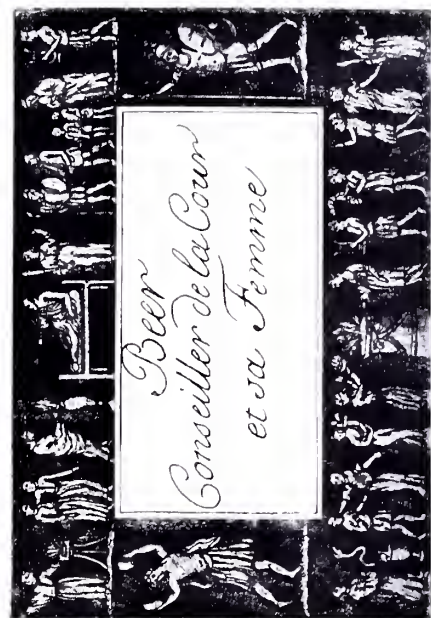 Beer
Conseiller de la Cour
et sa Femme